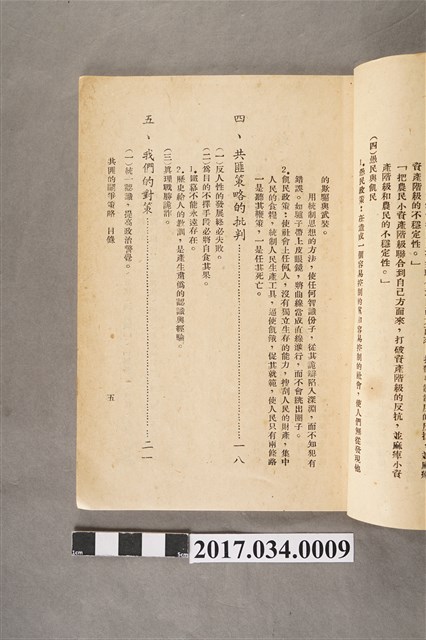 資產階級的不穩定性。」
「把農民小資產階級聯合到自己方面來，打破資產階級的反抗，並麻痺小資
產階級和農民的不穩定性。」
(四)愚民與飢民
1.愚民政策：在造成一個容易控制的
容易控制的社會，使人們無從發現他
的欺騙與武裝。
用統制思想的方法，使任何智識份子，從其詭辯陷入深淵，而不知犯有
錯誤。如驢子帶上皮眼鏡，將曲線當成直線進行，而不會跳出圈子。
2.飢民政策：使社會上任何人，沒有獨立生存的能力，搾刮人民的財產，集中
人民的食糧，統制人民生產工具，逼使飢餓，促其就範，使人民只有兩條路
一是聽其鞭策，一是任其死亡。
四、共匪策略的批判…………一八
(一)反人性的發展終必失敗。
(二)為目的不擇手段必將自食其果。
1.鐵幕不能永遠存在。
2.歷史給人的教訓，是產生舊債的認識與經驗。
(三)真理戰勝詭詐。
五、我們的對策…………二一
(一)統一認識，提高政治警覺。
共匪的鬪爭策略　目錄
五
1cm
5cm
2017.034.0009